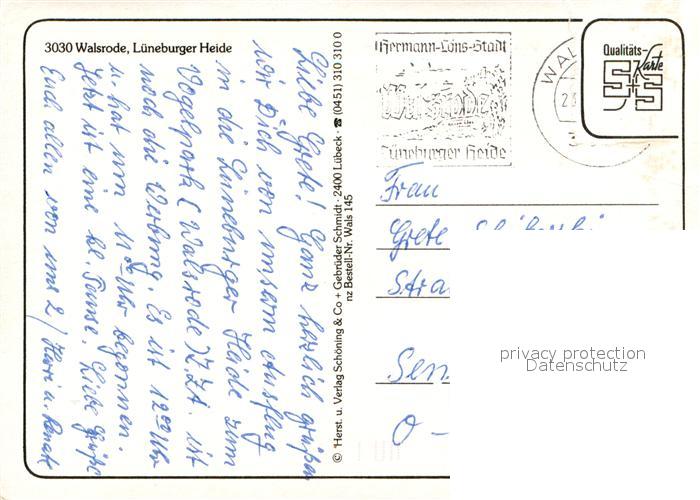 3030 Walsrode, Lüneburger Heide
Liebe Grete! Ganz herzlich grüßen
wir Dich von unserm Ausflug
in die Lüneburger Heide zum
Vogelpark (Walsrode) Z.Zt. ist
noch die Werbung. Es ist 12 00 Uhr
u. hat um 11 00 Uhr begonnen.
Jetzt ist eine kl. Pause. Liebe Grüße
Euch allen von uns 2/ Harri u. Renate
© Herst. u. Verlag Schöning & Co + Gebrüder Schmidt · 2400 Lübeck · ☎ (04 51) 310 310 0
nz Bestell-Nr. Wals 145
Hermann-Löns-Stadt
Walsrode
Lüneburger Heide
WAL
Qualitäts-
Karte
S+S
Frau
Grete
Stra
Sen
O -
privacy protection
Datenschutz